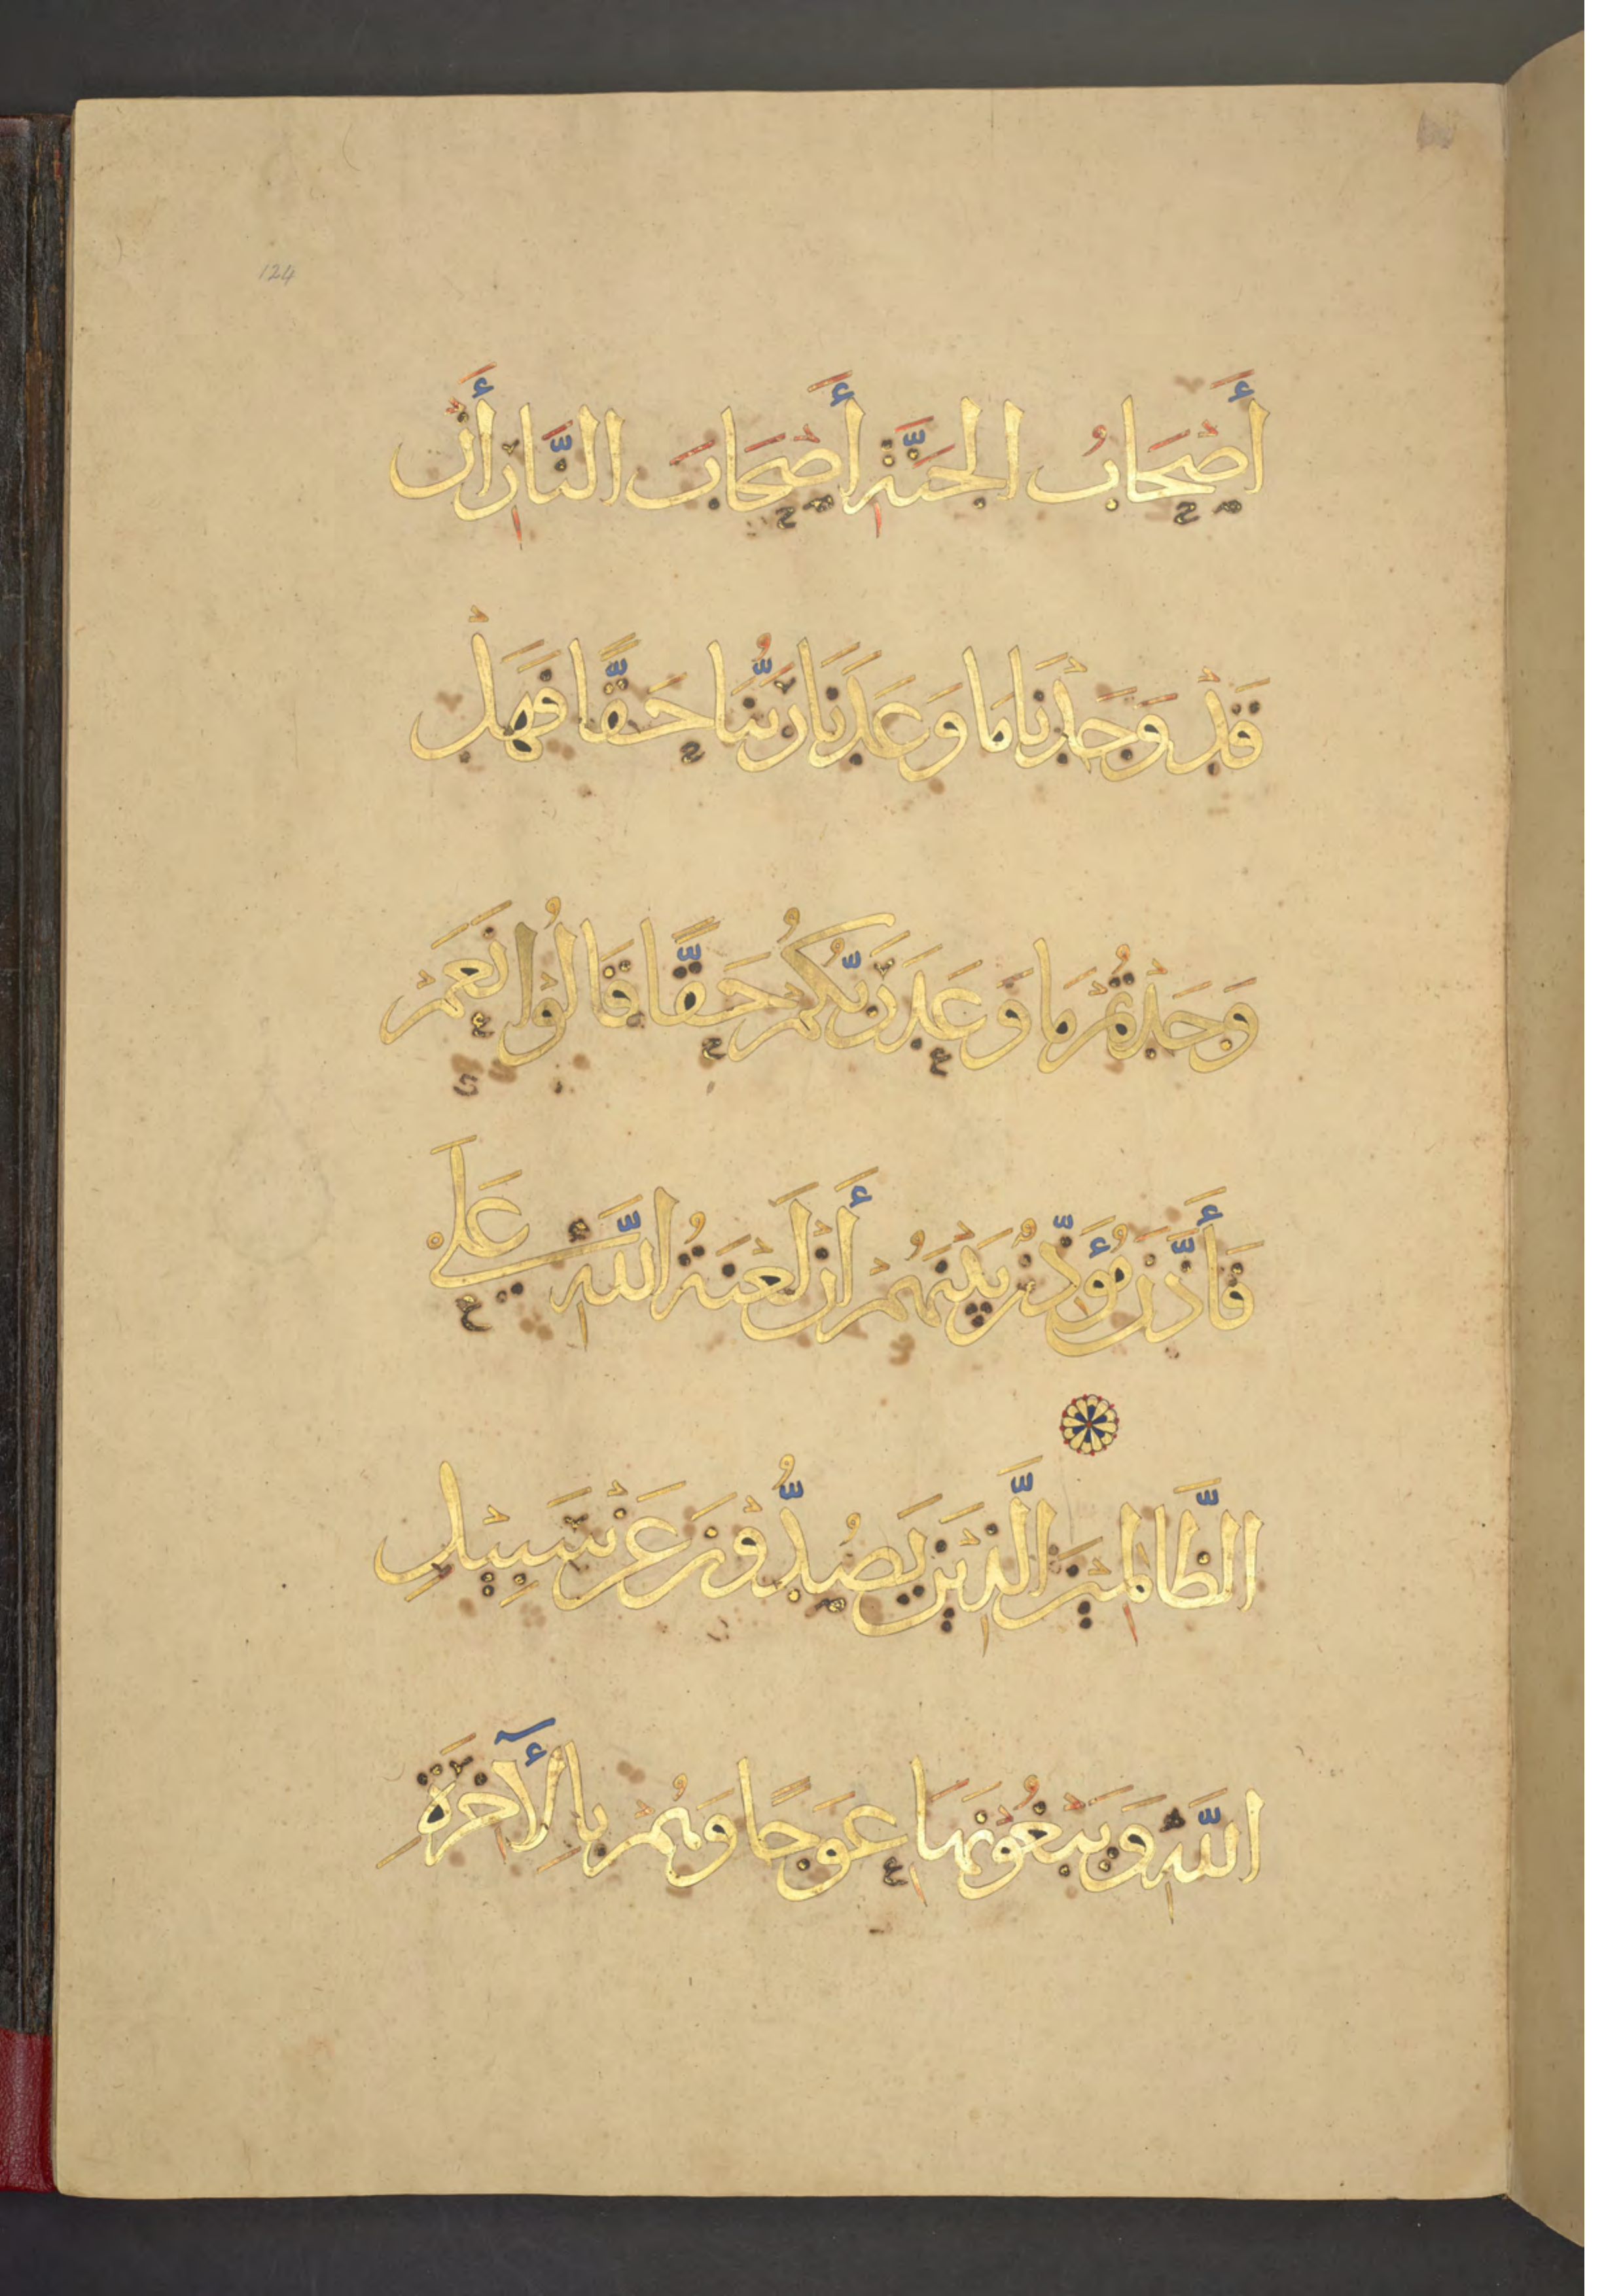 124
أَصْحَابُ الجَنَّةِ أَصْحَابَ النَّارِ أَنْ
قَدْ وَجَدْنَا مَا وَعَدَنَا رَبُّنَا حَقًّا فَهَلْ
وَجَدْتُمْ مَا وَعَدَ رَبُّكُمْ حَقًّا قَالُوْا نَعَمْ
فَأَذَّنَ مُؤَذِّنٌ بَيْنَهُمْ أَنْ لَعْنَةُ اللَّهِ عَلَى
الظَّالِمِيْنَ الَّذِيْنَ يَصُدُّوْنَ عَنْ سَبِيْلِ
اللَّهِ وَيَبْغُوْنَهَا عِوَجًا وَهُمْ بِالْأٓخِرَةِ